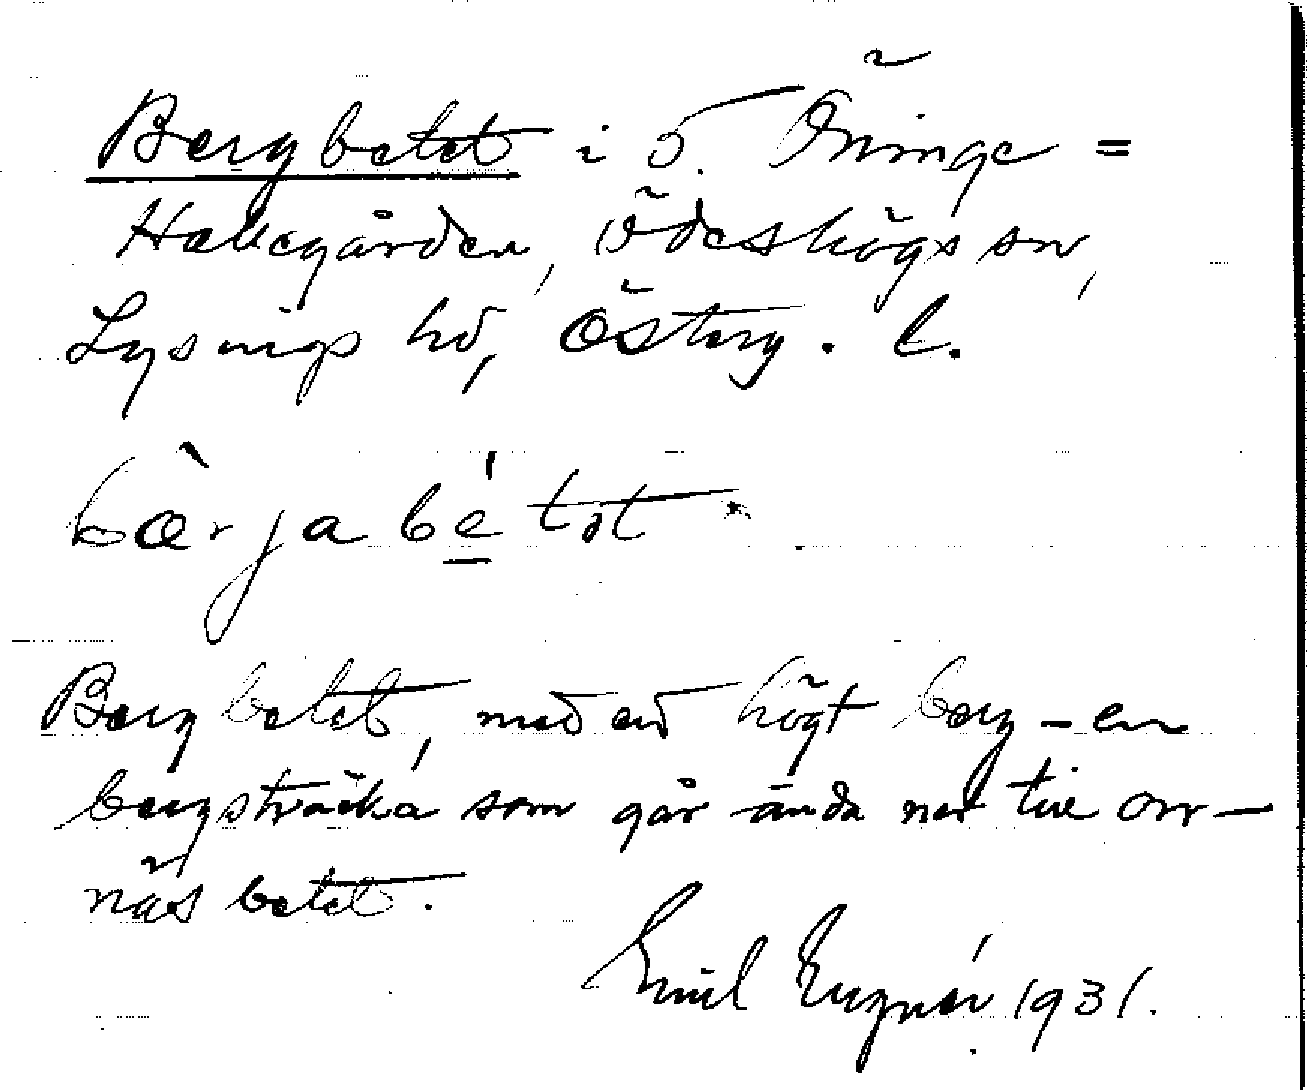 Bergbetet i Ö. Öninge =
Habegården, Ödeshögs sn,
Lysings hd, Österg. l.
bærjabétət
Bergbetet, med ett högt berg – en
bergsträcka som går ända ned till Orr-
näsbetet.
Emil 1931.